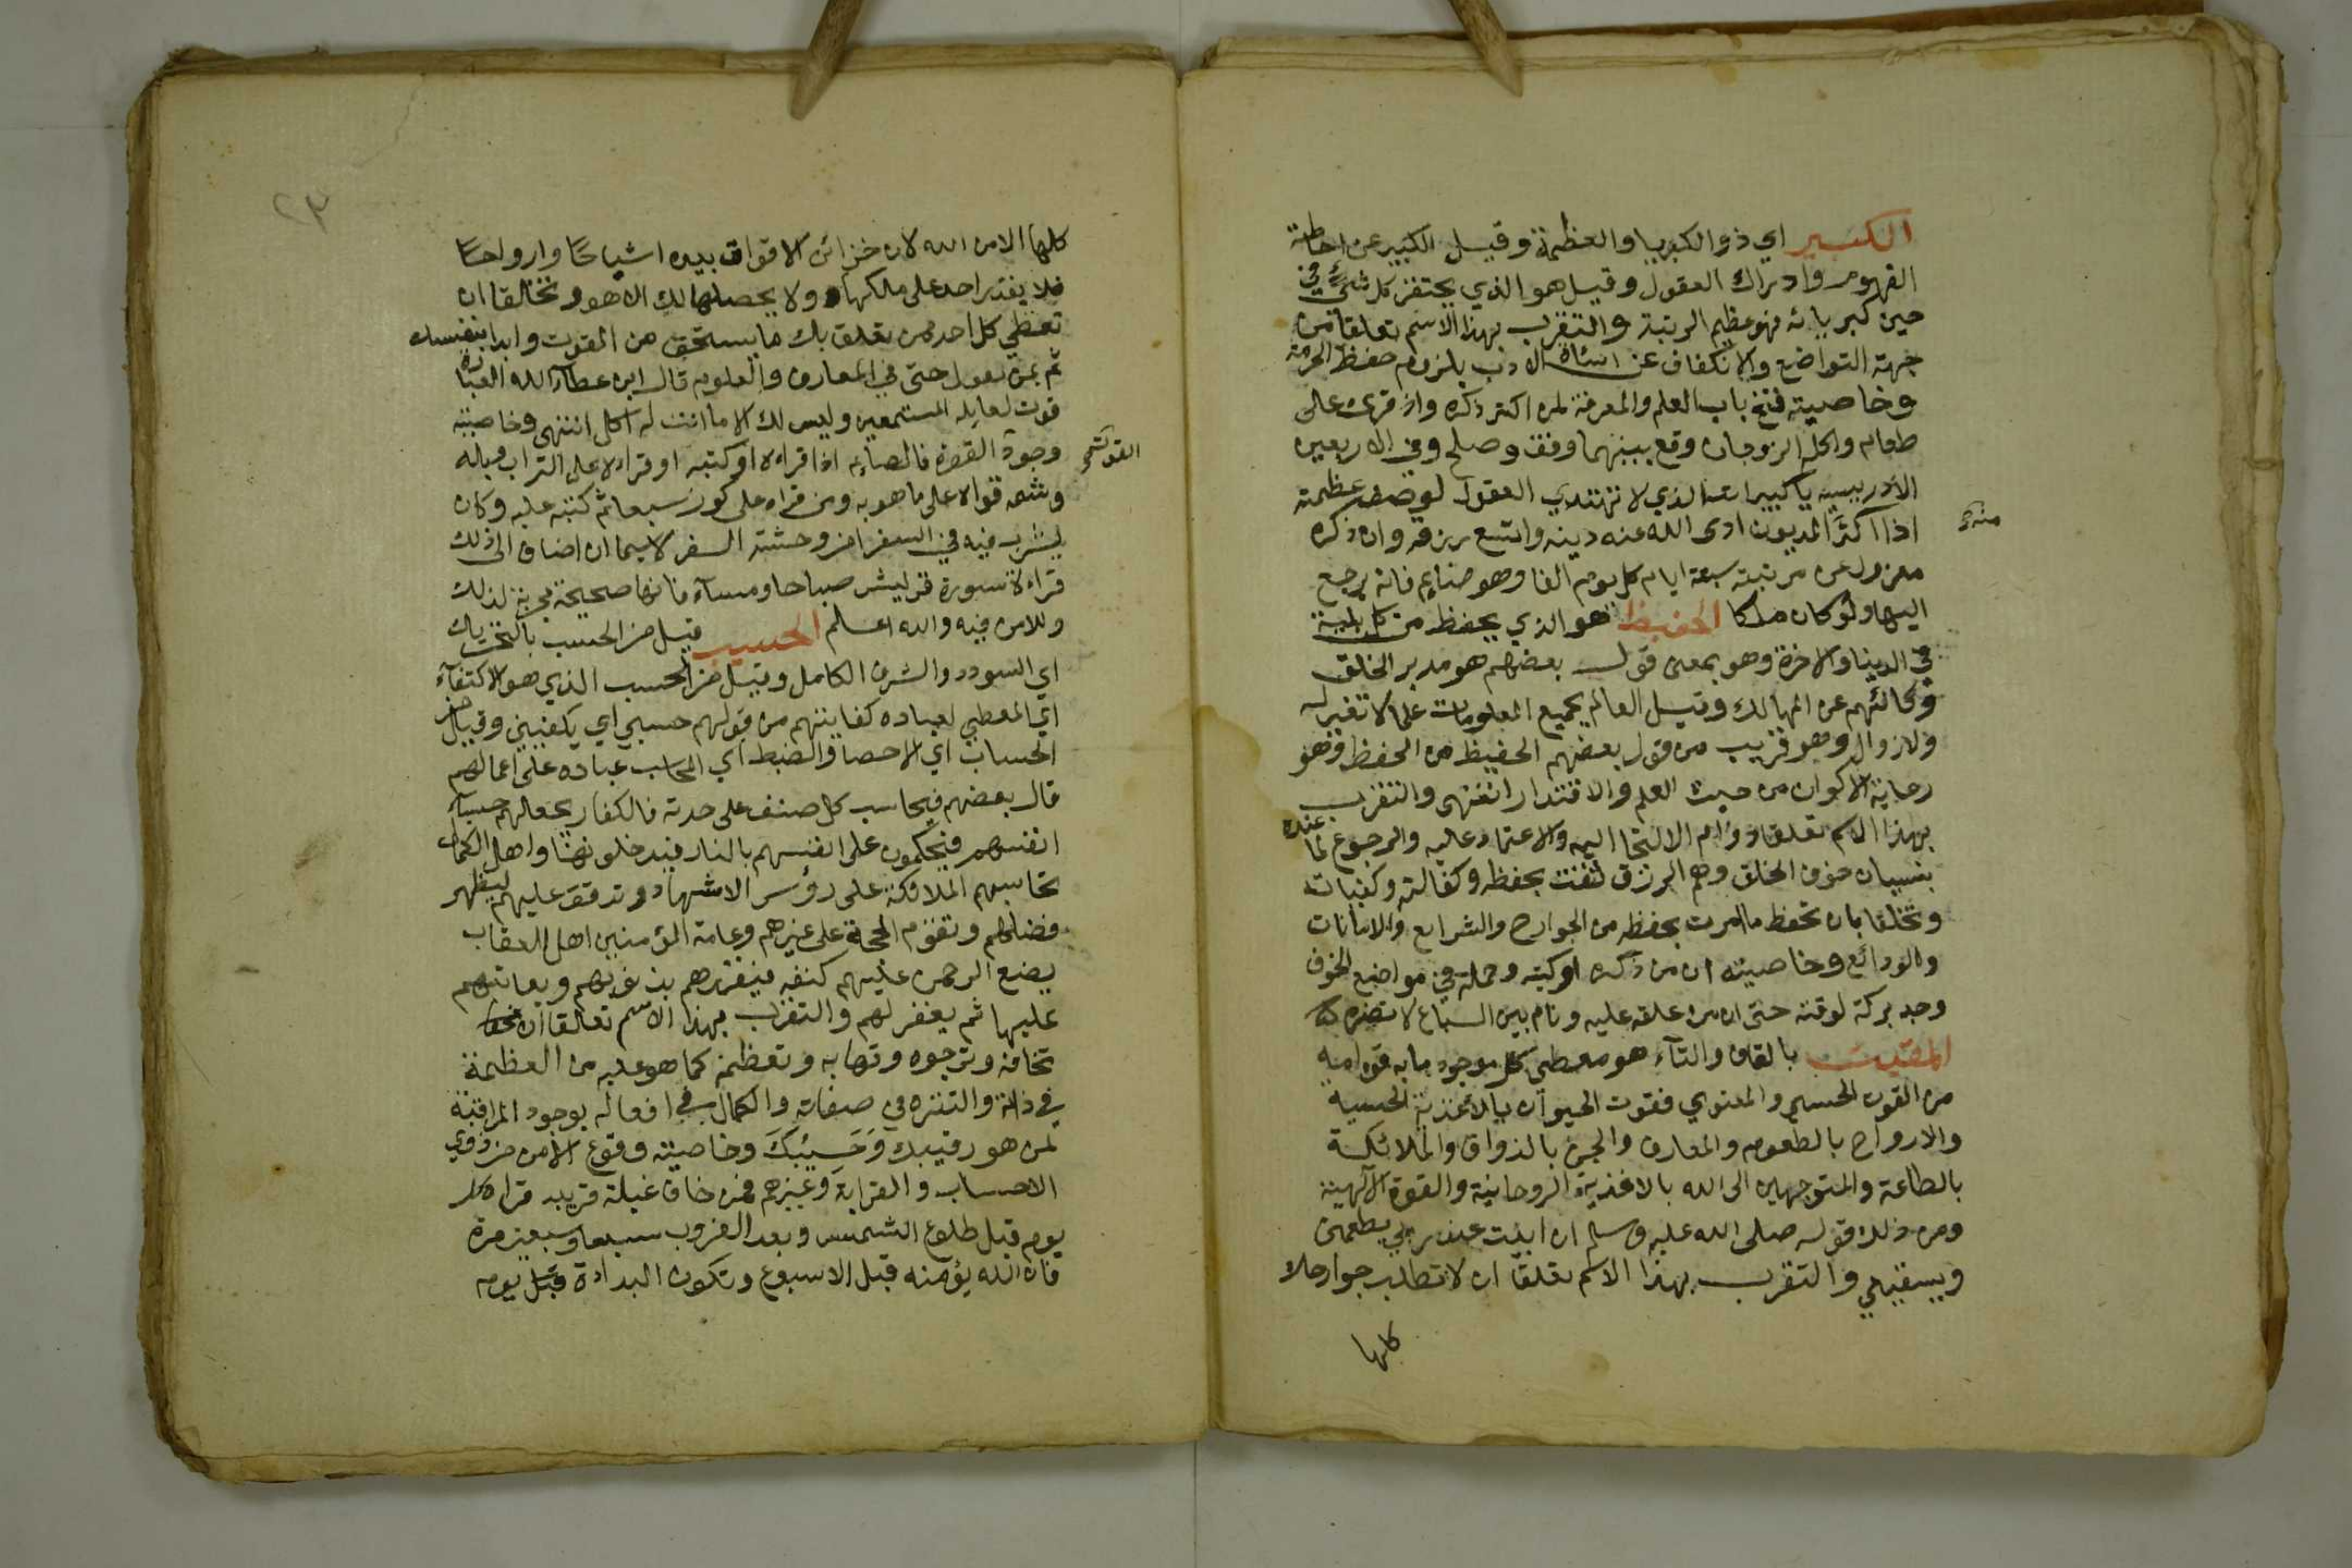 الكبير اي ذو الكبريا والعظمة وقيل الكبير عن احاطة
الفهوم وادراك العقول وقيل هو الذي يحتقر كل شئ في
حين كبريائه فهو عظيم الرتبة والتقرب بهذا الاسم تعلقا من
جهة التواضع والانكفاف عن اساة الادب بلزوم حفظ الحرمة
وخاصيته فتح باب العلم والمعرفة لمن اكثر ذكره واذ قرئ على
طعام واكله الزوجان وقع بينهما وفق وصلح وفي الاربعين
الادريسيه يا كبير انت الذي لا تهتدي العقول لوصف عظمته
اذا اكثر المديون ادى الله عنه دينه واتسع رزقه وان ذكره
منه
معزول عن مرتبته سبعة ايام كل يوم الفا وهو صايم فانه يرجع
اليها ولو كان ملكا الحفيظ هو الذي يحفظ من كل بلية
في الدينا والاخرة وهو بمعنى قول بعضهم هو مدبر الخلق
وكالئهم عن المهالك وقيل العالم بجميع المعلومات علما لا تغير له
ولا زوال وهو قريب من قول بعضهم الحفيظ من الحفظ وهو
رعاية الاكوان من حيث العلم والاقتدار انتهى والتقرب
بهذا الاسم تعلقا دوام الالتجا اليه والاعتماد عليه والرجوع لما عنده
بنسيان خوف الخلق وهم الرزق لثقتك بحفظه وكفالته وكفيات
وتخلقا بان تحفظ ما امرت بحفظه من الجوارح والشرايع والامانات
والودائع وخاصيته ان من ذكره او كتبه وحمله في مواضع الخوف
وجد بركة لوقته حتى ان من علقه عليه ونام بين السباع لا تضره
المقيت بالقاف والتآء هو معطي كل موجود ما به قوامه
من القوت الحسي والمعنوي فقوت الحيوان بالاغذية الحسية
والارواح بالطعوم والمعارف والجن بالذواق والملائكة
بالطاعة والمتوجهين الى الله بالاغذية الروحانية والقوة الآلهية
ومن ذلك قوله صلى الله عليه وسلم ان ابيت عند ربي يطعمني
ويسقيني والتقرب بهذا الاسم تعلقا ان لا تطلب حوايجك
كلها
٢٣
كلها الا من الله لان خزائن الاقوات بيده اشباحا وارواحا
فلا يقدر احد على ملكها ولا يحصلها لك الا هو وتخلقا ان
تعطي كل احد ممن تعلق بك ما يستحق من القوت وابدا بنفسك
ثم بمن تعول حتى في المعارف والعلوم قال ابن عطآء الله العبارة
قوت لعايلة المستمعين وليس لك الا ما انت له اكل انتهى وخاصيته
وجود القوة فالصايم اذا قراه او كتبه او قراه على التراب وبله
القوت
وشمه قواه على ما هو به ومن قراه على كوز سبعا ثم كتبه عليه وكان
يشرب فيه في السفر امن وحشة السفر لا سيما ان اضاف الى ذلك
قراءة سورة قريش صباحا ومسآء فانها صحيحة مجربة لذلك
وللامن فيه والله اعلم الحسيب قيل من الحسب بالتحريك
اي السودد والشرف الكامل وقيل من الحسب الذي هو الاكتفآء
اي المعطي لعباده كفايتهم من قولهم حسبي اي يكفيني وقيل من
الحساب اي الاحصا والضبط اي المحاسب عباده على اعمالهم
قال بعضهم فيحاسب كل صنف على حدته فالكفار يجعالهم حسباء
انفسهم فيحكمون على انفسهم بالنار فيدخلونها واهل الكمال
تحاسبهم الملائكة على رؤس الاشهاد وتدقق عليهم ليظهر
فضلهم وتقوم الحجة على غيرهم وعامة المؤمنين اهل العقاب
يضع الرحمن عليهم كنفه فيقررهم بذنوبهم ويعاتبهم
عليها ثم يغفر لهم والتقرب بهذا الاسم تعالقا ان
تخافه وترجوه وتهابه وتعظمه كما هو عليه من العظمة
في ذاته والتنزه في صفاته والكمال في افعاله بوجود المراقبة
لمن هو رقيبك وحسيبك وخاصيته وقوع الامن من ذوي
الاحساب والقرابة وغيرهم فمن خاف غيلة قريبه قراه كل
يوم قبل طلوع الشمس وبعد الغروب سبعا وسبعين مرة
فان الله يؤمنه قبل الاسبوع وتكون البدادة قبل يوم